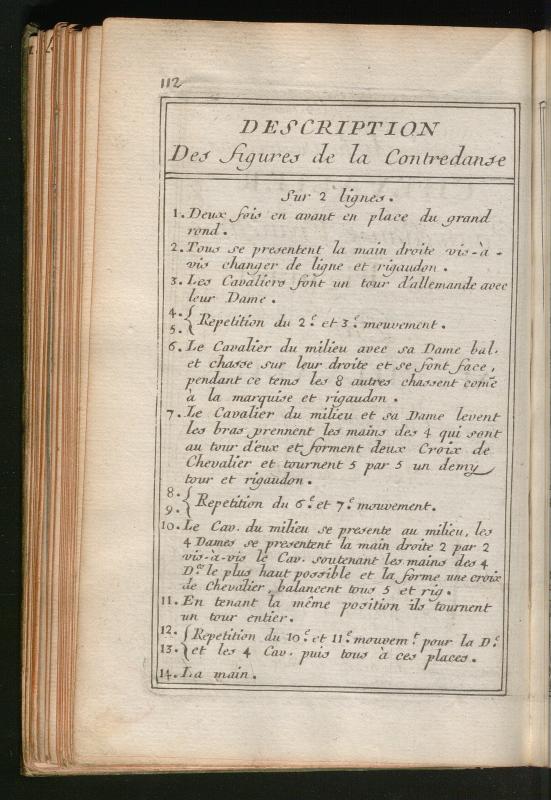 112
DESCRIPTION
Des figures de la Contredanse
Sur 2 lignes.
1. Deux fois en avant en place du grand
rond.
2. Tous se presentent la main droite vis-à-
vis changer de ligne et rigaudon.
3. Les Cavaliers font un tour d'allemande avec
leur Dame.
4. 
5. { Repetition du 2.e et 3.e mouvement.
6. Le Cavalier du milieu avec sa Dame bal.
et chasse sur leur droite et se font face,
pendant ce tems les 8 autres chassent come
à la marquise et rigaudon.
7. Le Cavalier du milieu et sa Dame levent
les bras prennent les mains des 4 qui sont
au tour d'eux et forment deux Croix de
Chevalier et tournent 5 par 5 un demy
tour et rigaudon.
8.
9. { Repetition du 6.e et 7.e mouvement.
10. Le Cav. du milieu se presente au milieu, les
4 Dames se presentent la main droite 2 par 2
vis-à-vis le Cav. soutenant les mains des 4
D.es le plus haut possible et la forme une croix
de Chevalier, balancent tous 5 et rig.
11. En tenant la même position ils tournent
un tour entier.
12. { Repetition du 10.e et 11.e mouvem.t pour la D.e
13. et les 4 Cav. puis tous à ces places.
14. La main.